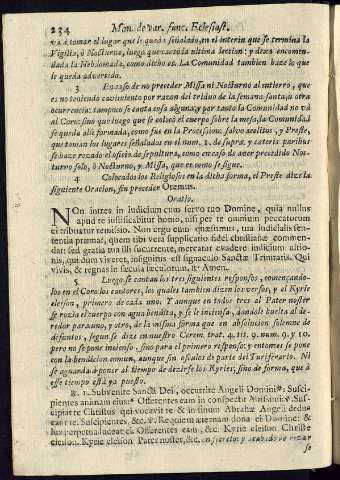 234 Man. de var. func. Eclesiast.
va à tomar el lugar que le queda señalado, en el interin que se termina la
Vigilia, ò Nocturno, luego que cantò la ultima leccion: y dexa encomen-
dada la Hebdomada, como dicho es. La Comunidad tambien haze lo que
le queda advertido.
3 En caso de no preceder Missa ni Nocturno al entierro, que
es no teniendo cacimiento por razon del triduo de la semana santa, ù otra
ocurrencia: tampoco se canta cosa alguna; y por tanto la Comunidad no và
al Coro: sino que luego que se colocò el cuerpo sobre la mesa, la Comunidad
se queda alli formada, como fue en la Procession: salvo acolitos, y Preste,
que toman los lugares señalados en el num. 2. de supra. y cateris paribus
se haze rezado el oficio de sepultura, como en caso de aver precedido Noc-
turno solo, ò Nocturno, y Missa, que es como se sigue.
4 Colocados los Religiosos en la dicha forma, el Preste dize la
siguiente Oracion, sin preceder Oremus.
Oratio.
NOn intres in iudicium cum servo tuo Domine, quia nullus
apud te iustificabitur homo, nisi per te omnium peccatorum
ei tribuatur remissio. Non ergo eum quæsumus, tua iudicialis sen-
tentia præmat, quem tibi vera supplicatio fidei christianæ commen-
dat: sed gratia tua illi succurente, mercatur evadere iudicium ultio-
nis, qui dum viveret, insignitus est signaculo Sanctæ Trinitatis. Qui
vivis, & regnas in sæcula sæculorum. ℟ Amen.
5 Luego se cantan los tres siguientes responsos, començando-
los en el Coro los cantores, los quales tambien dizen los versos, y el Kyrie
eleison, primero de cada uno. Y aunque en todos tres al Pater noster
se rozia el cuerpo con agua bendita, y se le inciensa, dandole buelta al de-
redor para uno, y otro, de la misma forma que en absolucion solemne de
difuntos, segun se dize en nuestro Cerem. trat. 4. tit. 9. num. 9. y 10.
pero no se pone incienso, sino para el primero responso; y entonces se pone
con la bendicion comun, aunque sin osculos de parte del Turiferario. Ni
se aguarda à poner al tiempo de dezirse los Kyries, sino de forma, que à
esse tiempo està ya puesto.
℟. 1. Subvenite Sancti Dei, occurrite Angeli Domini*: Susci-
pientes animam eius:* Offerentes eam in conspectu Altissimi. ℣. Sus-
cipiat te Christus qui vocavit te & in sinum Abrahæ Angeli dedu-
cant te. Suscipientes, &c. ℣. Requiem æternam dona ei Domine: &
lux perpetua luceat ei. Offerentes eam, &c. Kyrie eleison. Christe
eleison. Kyrie eleison Pater noster, &c. en secreto: y acabado de rezar
se